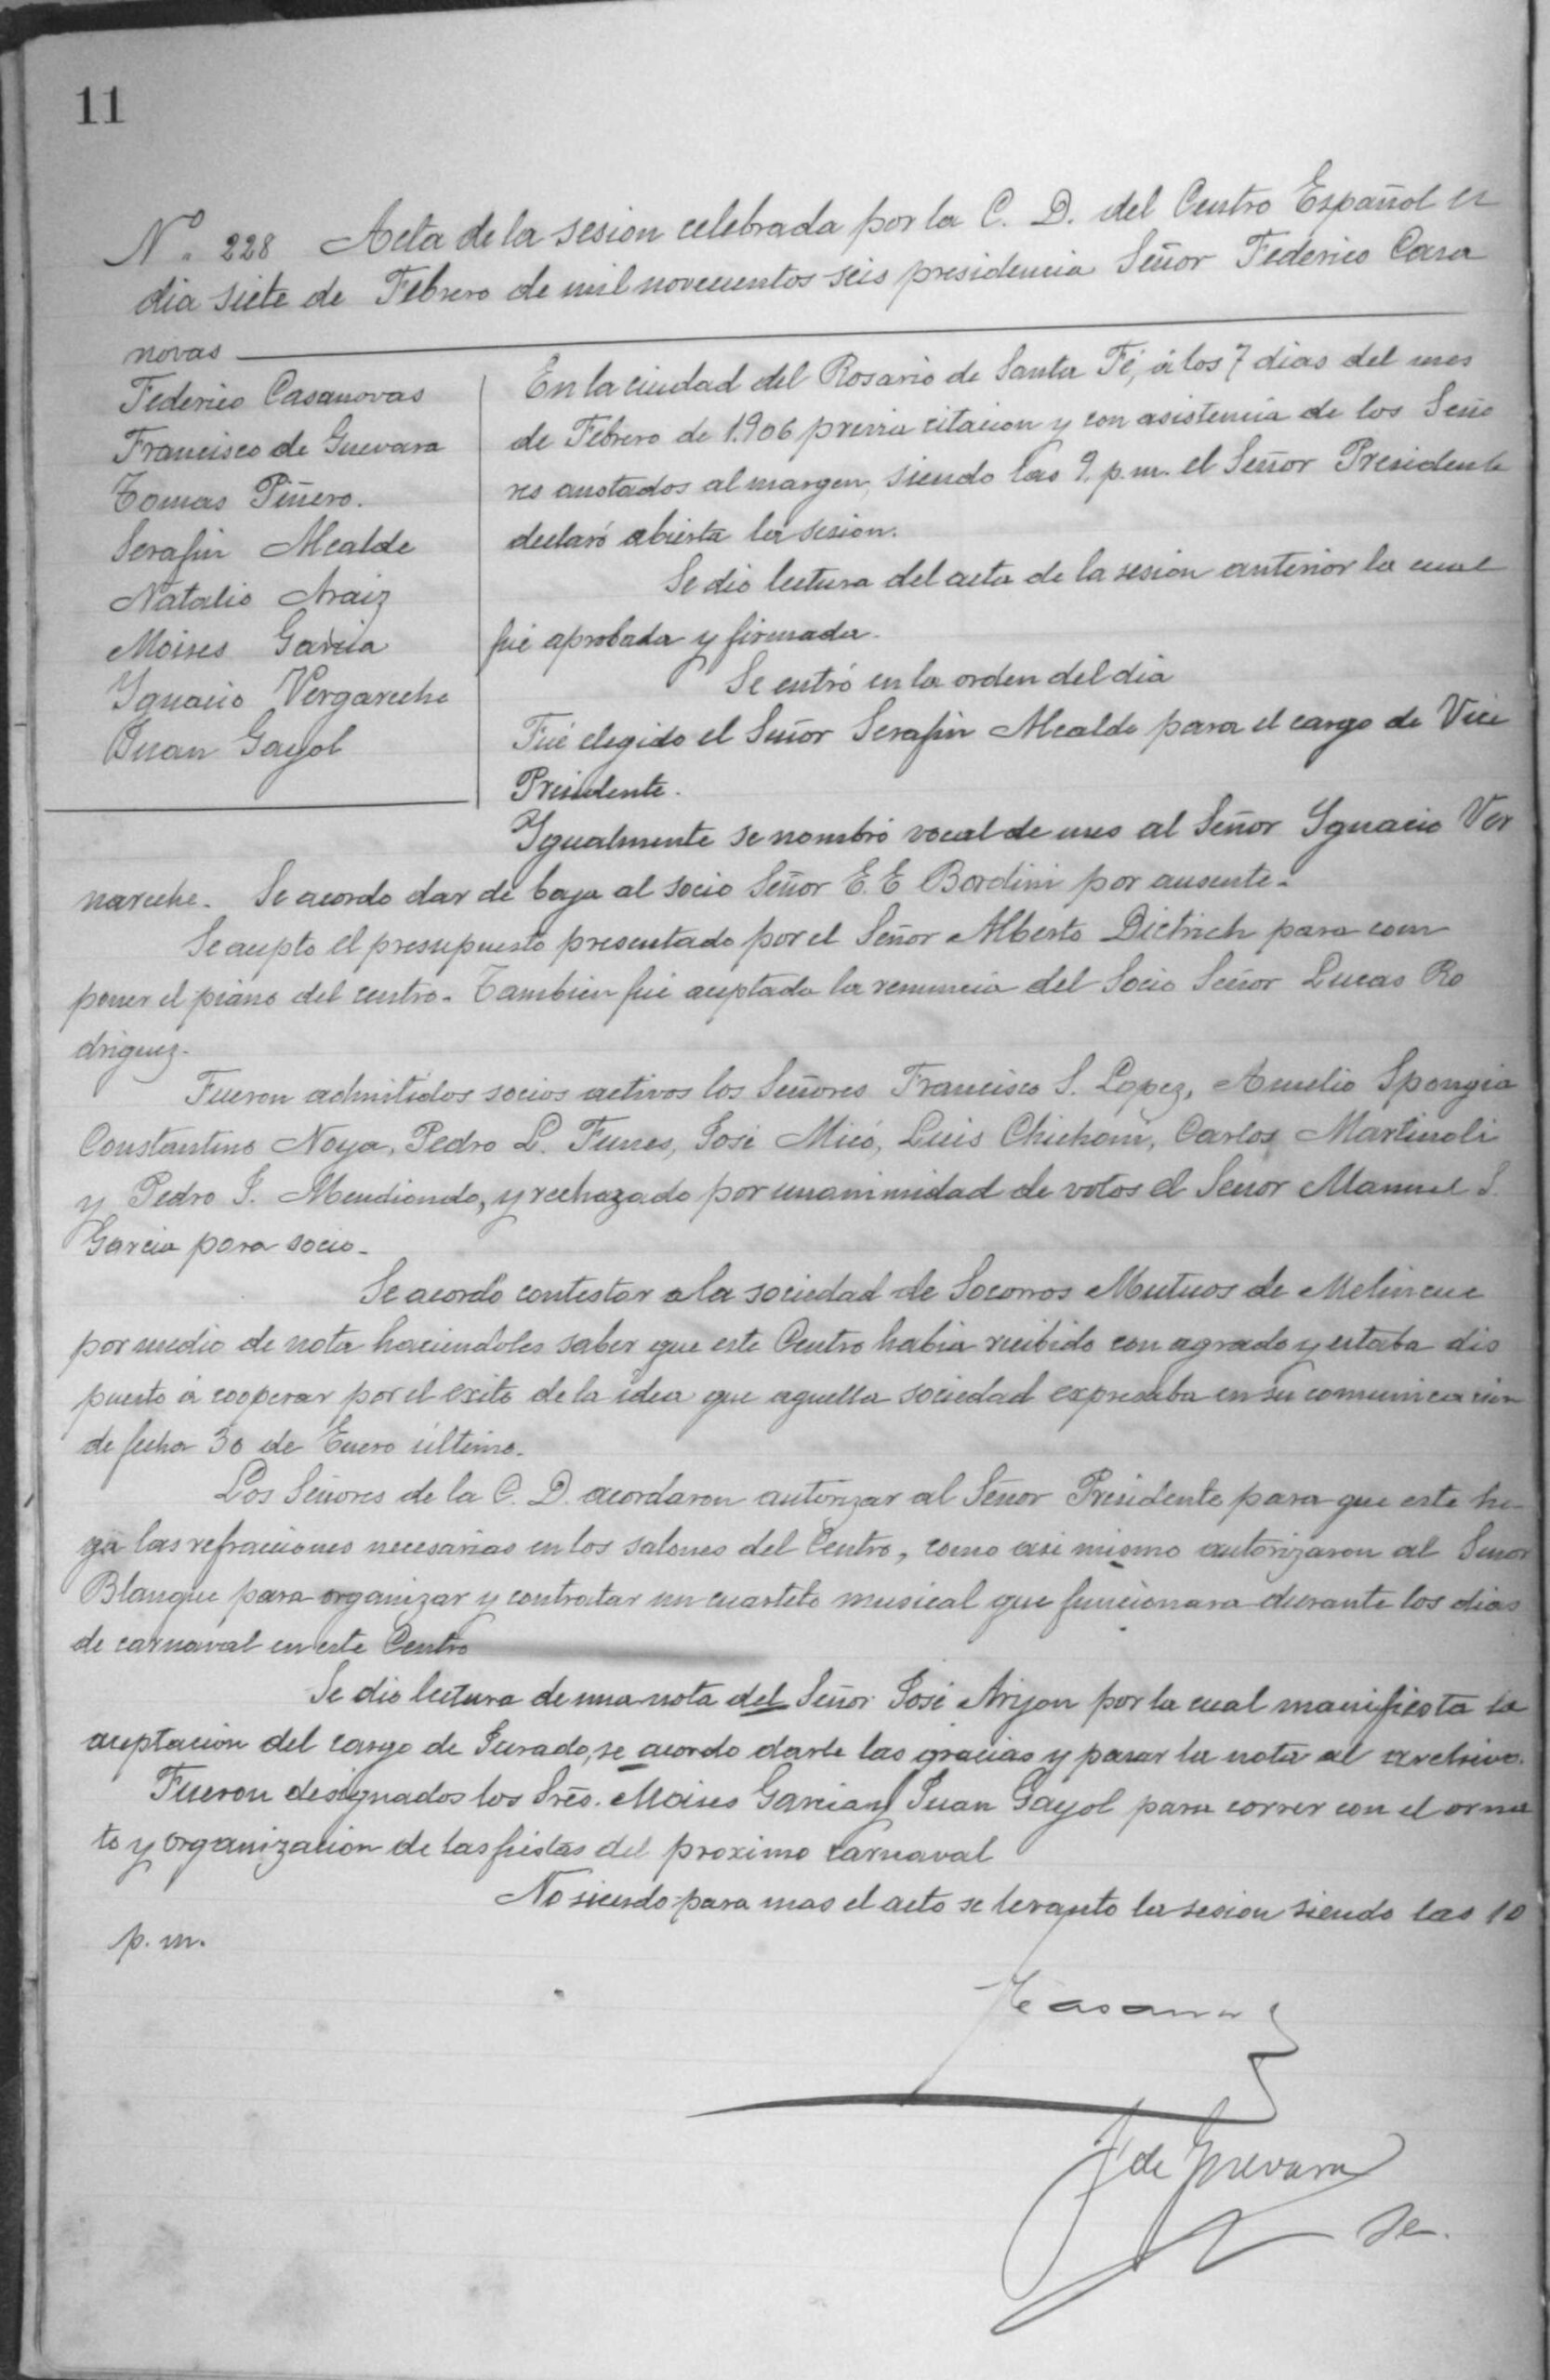 11
N.º 228 Acta de la sesion celebrada por la C. D. del Centro Español el
dia siete de Febrero de mil novecientos seis presidencia Señor Federico Casa
novas
Federico Casanovas
Francisco de Guevara
Tomas Piñero.
Serafin Alcalde
Natalio Araiz
Moises Garcia
Ygnacio Vergareche
Juan Gayol
En la ciudad del Rosario de Santa Fé, á los 7 dias del mes
de Febrero de 1.906 previa citacion y con asistencia de los Seño
res anotados al margen, siendo las 9. p.m. el Señor Presidente
declaró abierta la sesion.
Se dio lectura del acta de la sesion anterior la cual
fué aprobada y firmada.
Se entró en la orden del dia
Fué elegido el Señor Serafin Alcalde para el cargo de Vice
Presidente.
Ygualmente se nombró vocal de mes al Señor Ygnacio Ver
nareche. Se acordo dar de baja al socio Señor E. E Bordini por ausente.
Se acepto el presupuesto presentado por el Señor Alberto Dietrich para com
poner el piano del centro. Tambien fué aceptada la renuncia del Socio Señor Lucas Ro
driguez.
Fueron admitidos socios activos los Señores Francisco S. Lopez, Aurelio Spongia
Constantino Noya, Pedro L. Funes, José Micó, Luis Chichoni, Carlos Martinoli
y Pedro J. Mendiondo, y rechazado por unanimidad de votos el Señor Manuel S.
Garcia para socio.
Se acordo contestar a la sociedad de Socorros Mutuos de Melincue
por medio de nota haciendoles saber que este Centro habia recibido con agrado y estaba dis
puesto á cooperar por el exito de la idea que aquella sociedad expresaba en su comunicacion
de fecha 30 de Enero último.
Los Señores de la C. D. acordaron autorizar al Señor Presidente para que este ha
ga las refracciones necesarias en los salones del Centro, como asi mismo autorizaron al Señor
Blanque para organizar y contratar un cuarteto musical que funcionara durante los dias
de carnaval en este Centro
Se dio lectura de una nota del Señor José Arijon por la cual manifiesta la
aceptacion del cargo de Jurado, se acordo darle las gracias y pasar la nota al archivo.
Fueron designados los Sres. Moises Garcia y Juan Gayol para correr con el orna
to y organizacion de las fiestas del proximo carnaval
No siendo para mas el acto se levanto la sesion siendo las 10
p. m.
F Casanovas
F de Guevara
Se.